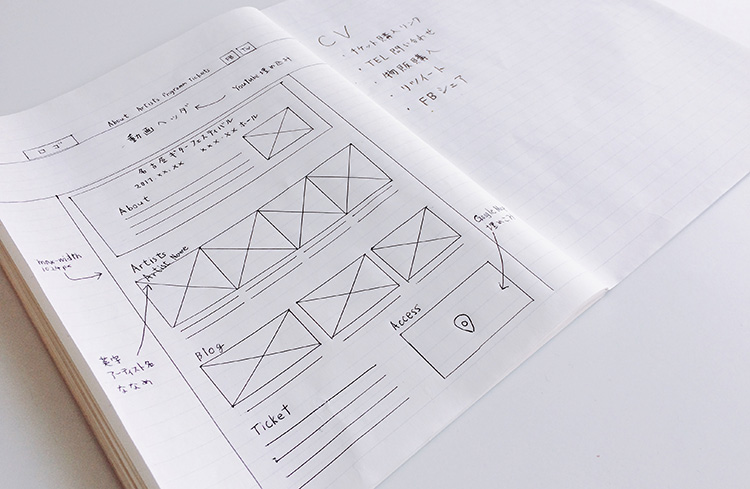 ロゴ
About Artists Program Tickets
FB
TW
動画ヘッダ
YouTube埋め込み
名古屋ギターフェスティバル
2017.xx.xx xxx.xxホール
About
Artists
Artist Name
max-width
1024px
英字
アーティスト名
ななめ
Blog
Access
Google Map
埋めこみ
Ticket
CV
・チケット購入リンク
・TEL問い合わせ
・物販購入
・リツイート
・FBシェア